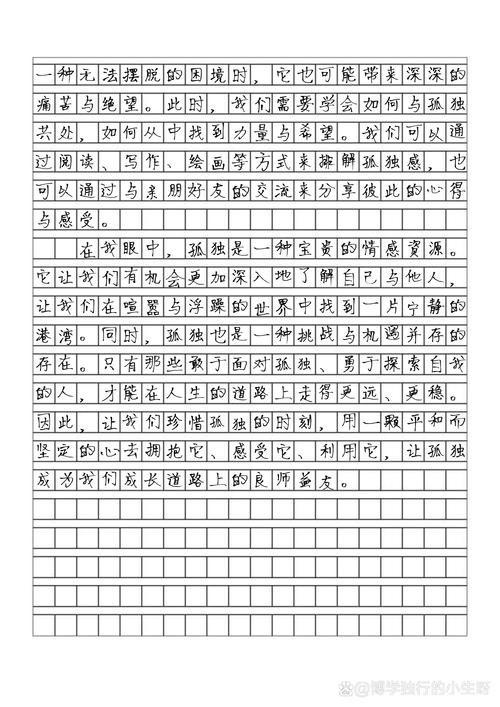 一种无法摆脱的困境时，它也可能带来深深的
痛苦与绝望。此时，我们需要学会如何与孤独
共处，如何从中找到力量与希望。我们可以通
过阅读、写作、绘画等方式来排解孤独感，也
可以通过与亲朋好友的交流来分享彼此的心得
与感受。
在我眼中，孤独是一种宝贵的情感资源。
它让我们有机会更加深入地了解自己与他人，
让我们在喧嚣与浮躁的世界中找到一片宁静的
港湾。同时，孤独也是一种挑战与机遇并存的
存在。只有那些敢于面对孤独、勇于探索自我
的人，才能在人生的道路上走得更远、更稳。
因此，让我们珍惜孤独的时刻，用一颗平和而
坚定的心去拥抱它、感受它、利用它，让孤独
成为我们成长道路上的良师益友。
@博学独行的小生呀